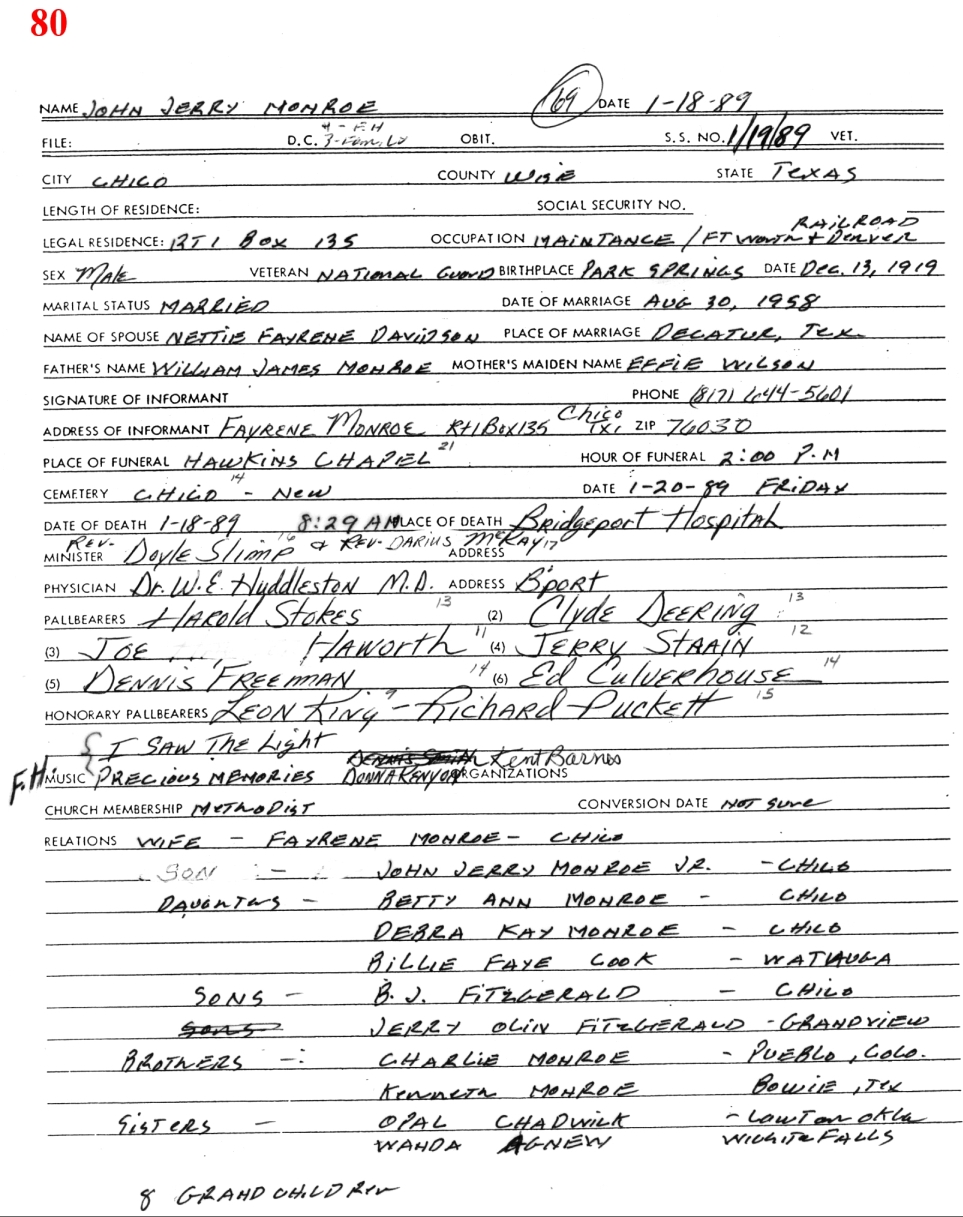 80
NAME JOHN JERRY MONROE 69 DATE 1-18-89
4 - F.H
FILE: D.C. 3-Family OBIT. S.S. NO. 1/19/89 VET.
CITY CHICO COUNTY WISE STATE TEXAS
LENGTH OF RESIDENCE: SOCIAL SECURITY NO.
RAILROAD
LEGAL RESIDENCE: RT 1 BOX 135 OCCUPATION MAINTANCE / FT WORTH + DENVER
SEX MALE VETERAN NATIONAL GUARD BIRTHPLACE PARK SPRINGS DATE DEC. 13, 1919
MARITAL STATUS MARRIED DATE OF MARRIAGE AUG 30, 1958
NAME OF SPOUSE NETTIE FAYRENE DAVIDSON PLACE OF MARRIAGE DECATUR, TEX
FATHER'S NAME WILLIAM JAMES MONROE MOTHER'S MAIDEN NAME EFFIE WILSON
SIGNATURE OF INFORMANT PHONE (817) 644-5601
ADDRESS OF INFORMANT FAYRENE MONROE Rt1 Box 135 Chico TX, ZIP 76030
PLACE OF FUNERAL HAWKINS CHAPEL 21 HOUR OF FUNERAL 2:00 P.M
CEMETERY CHICO 14 - New DATE 1-20-89 FRIDAY
DATE OF DEATH 1-18-89 8:29 AM PLACE OF DEATH Bridgeport Hospital
MINISTER REV. Doyle Slimp 16 & REV. DARIUS McRAY 17 ADDRESS
PHYSICIAN Dr. W.E. Hyddleston M.D. ADDRESS B'PORT
PALLBEARERS HAROLD STOKES 13 (2) Clyde DEERING 13
(3) JOE HAWORTH 11 (4) JERRY STRAIN 12
(5) DENNIS FREEMAN 14 (6) Ed CULVERHOUSE 14
HONORARY PALLBEARERS LEON KING 9 - Richard Puckett 15
I SAW The Light
DENNIS SMITH Kent Barnes
F.H MUSIC PRECIOUS MEMORIES DONNA KENYON ORGANIZATIONS
CHURCH MEMBERSHIP METHODIST CONVERSION DATE NOT SURE
RELATIONS WIFE - FAYRENE MONROE - CHICO
SON - JOHN JERRY MONROE JR. - CHICO
DAUGHTERS - BETTY ANN MONROE - CHICO
DEBRA KAY MONROE - CHICO
BILLIE FAYE COOK - WATAUGA
SONS - B. J. FITZGERALD - CHICO
SONS JERRY OLIN FITZGERALD - GRANDVIEW
BROTHERS - CHARLIE MONROE - PUEBLO, COLO.
KENNETH MONROE BOWIE, TEX
SISTERS - OPAL CHADWICK - LAWTON OKLA
WANDA AGNEW WICHITA FALLS
8 GRANDCHILDREN